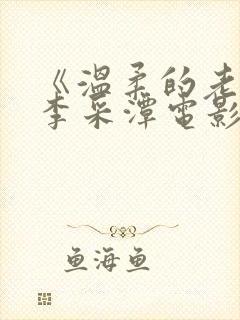 《温柔的老
李采潭电影
鱼海鱼